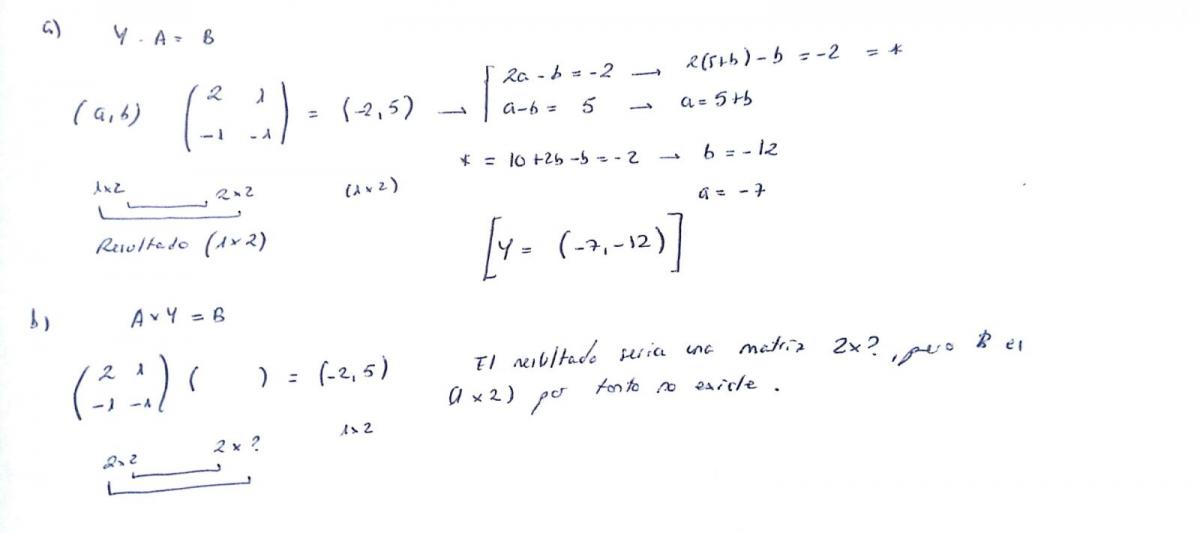 a) Y · A = B
(a,b) (2 1 / -1 -1) = (-2,5) → { 2a - b = -2 → 2(5+b) - b = -2 = *
a-b = 5 → a = 5+b
* = 10 + 2b - b = -2 → b = -12
1x2 2x2 (1x2) a = -7
Resultado (1x2) [Y = (-7,-12)]
b) A x Y = B
(2 1 / -1 -1) ( ) = (-2,5) El resultado seria una matriz 2x?, pero B es
(1 x 2) por tanto no existe.
2x2 2x? 1x2